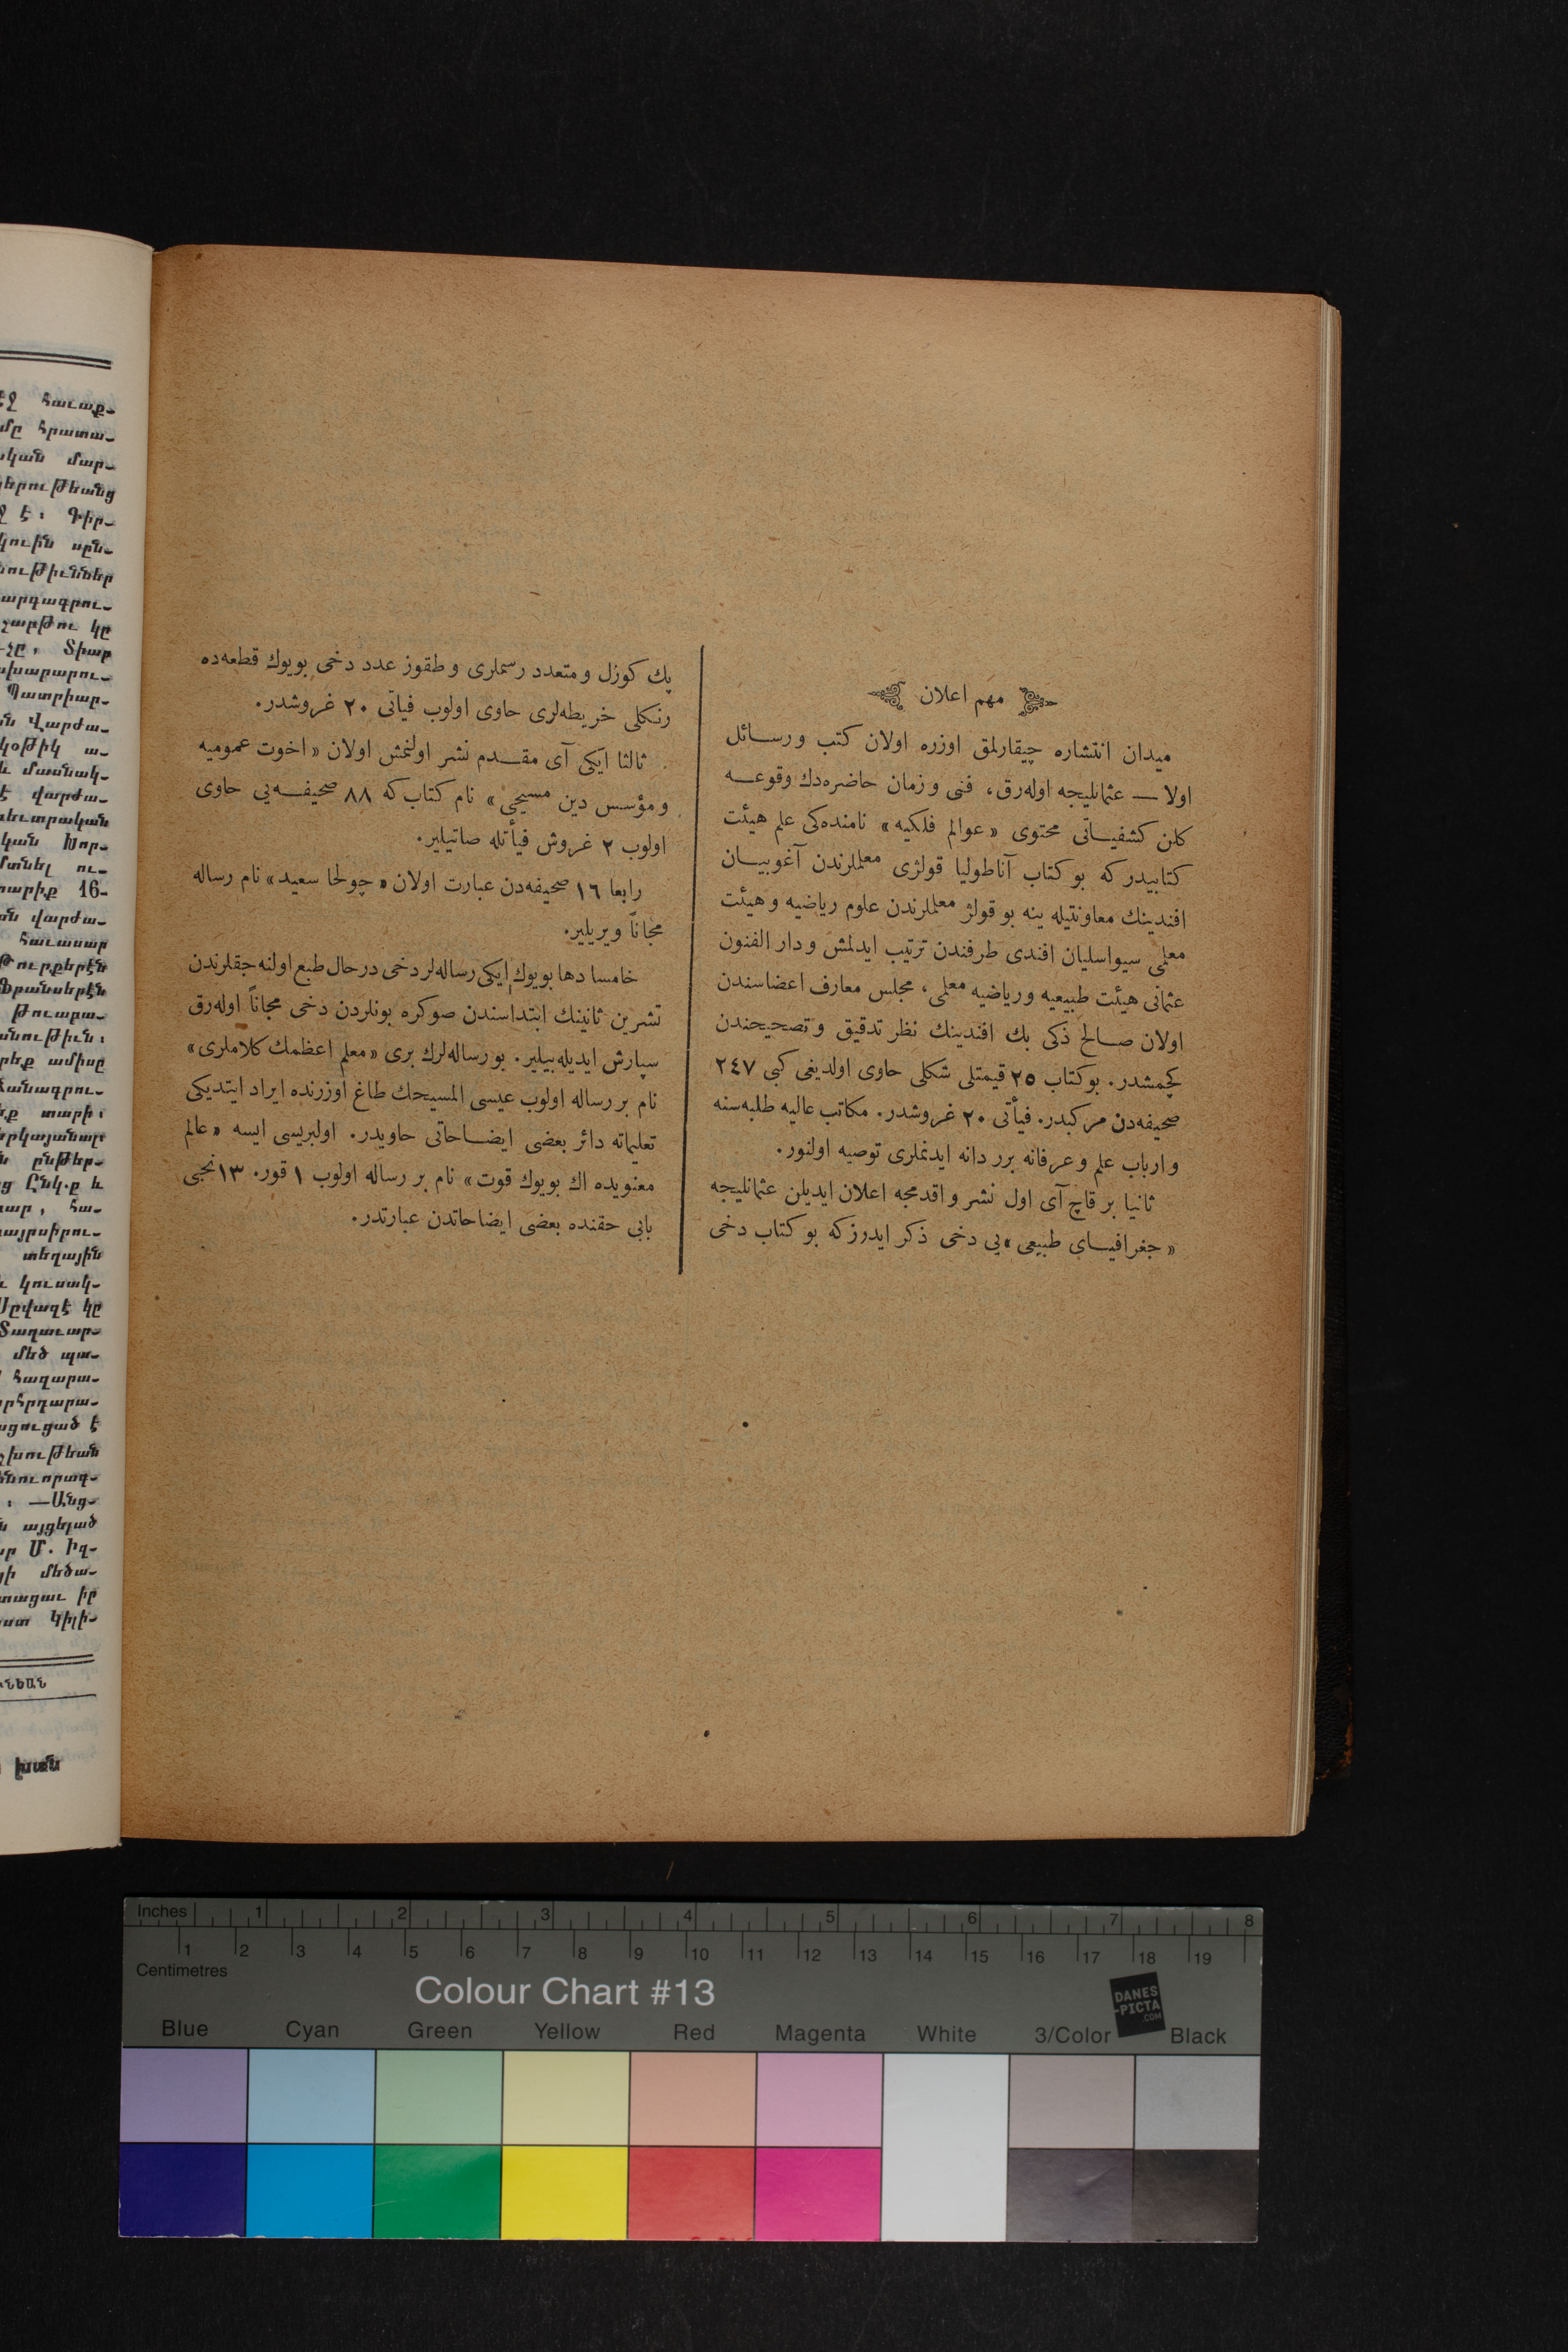 مهم اعلان
میدان انتشاره چیقارلمق اوزره اولان کتب ورسـائل
اولا — عثمانلیجه اولەرق، فنی وزمان حاضرەدك وقوعـه
کلن کشفیـاتی محتوی « عوالم فلکیه » نامندەکی علم هیئت
کتابیدر که بو کتاب آناطولیا قولژی معلملرندن آغوبیـان
افندینك معاونتیله ینه بو قولژ معلملرندن علوم ریاضیه وهیئت
معلمی سیواسلیان افندی طرفندن ترتیب ایدلمش ودار الفنون
عثمانی هیئت طبیعیه وریاضیه معلمی، مجلس معارف اعضاسندن
اولان صـالح ذکی بك افندینك نظر تدقیق وتصحیحندن
کچمشدر. بوکتاب ٢٥ قیمتلی شکلی حاوی اولدیغی کبی ٢٤٧
صحیفەدن مرکبدر. فیأتی ٢٠ غروشدر. مکاتب عالیه طلبەسنه
وارباب علم وعرفانه برر دانه ایدنملری توصیه اولنور.
ثانیا بر قاچ آی اول نشر واقدمجه اعلان ایدیلن عثمانلیجه
« جغرافیـای طبیعی »یی دخی ذکر ایدرزکه بو کتاب دخی
پك کوزل ومتعدد رسملری وطقوز عدد دخی بویوك قطعەده
رنکلی خریطەلری حاوی اولوب فیاتی ٢٠ غروشدر.
ثالثا ایکی آی مقـدم نشر اولنمش اولان « اخوت عمومیه
ومؤسس دین مسیحی » نام کتاب که ٨٨ صحیفـەیی حاوی
اولوب ٢ غروش فیأتله صاتیلیر.
رابعا ١٦ صحیفەدن عبارت اولان « چولخا سعید » نام رساله
مجاناً ویریلیر.
خامسا دها بویوك ایکی رسالەلر دخی درحال طبع اولنه جقلرندن
تشرین ثانینك ابتداسندن صوکره بونلردن دخی مجاناً اولەرق
سپارش ایدیلەبیلیر. بو رسالەلرك بری « معلم اعظمك کلاملری »
نام بر رساله اولوب عیسی المسیحك طاغ اوزرنده ایراد ایتدیکی
تعلیماته دائر بعضی ایضـاحاتی حاویدر. اولبریسی ایسه « عالم
معنویده اك بویوك قوت » نام بر رساله اولوب ١ قور. ١٣نجی
بابی حقنده بعضی ایضاحاتدن عبارتدر.
հաւաք-
մը հրատա-
մար-
է: Գիր-
կը
Տիար
Պատրիար-
վարժա-
16-
վարժա-
հաւասար
տարի:
մեծ պա-
այցելած
Մ.
մեծա-
Կիլի-
Inches 1 2 3 4 5 6 7 8
1 2 3 4 5 6 7 8 9 10 11 12 13 14 15 16 17 18 19
Centimetres
Colour Chart #13
DANES
-PICTA
.COM
Blue Cyan Green Yellow Red Magenta White 3/Color Black